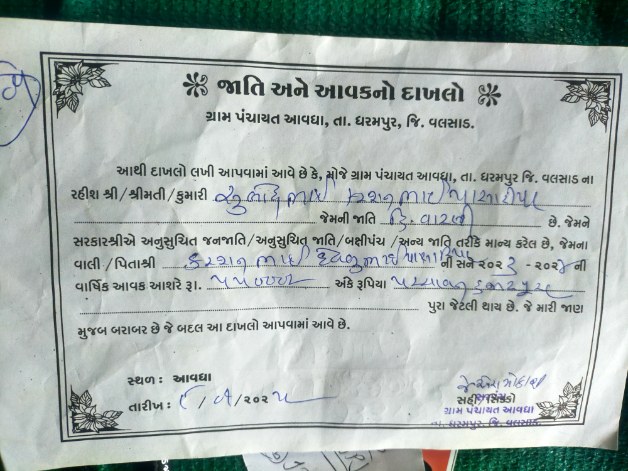 જાતિ અને આવકનો દાખલો
ગ્રામ પંચાયત આવધા, તા. ધરમપુર, જિ. વલસાડ.
આથી દાખલો લખી આપવામાં આવે છે કે, મોજે ગ્રામ પંચાયત આવધા, તા. ધરમપુર જિ. વલસાડ ના
રહીશ શ્રી/શ્રીમતી/કુમારી
જેમની જાતિ હિ. વારલી છે. જેમને
સરકારશ્રીએ અનુસુચિત જનજાતિ/અનુસુચિત જાતિ/બક્ષીપંચ /અન્ય જાતિ તરીકે માન્ય કરેલ છે, જેમના
વાલી /પિતાશ્રી ની સને ૨૦૨ - ૨૦૨ ની
વાર્ષિક આવક આશરે રૂા. ૫૫૦૦૦ અંકે રૂપિયા પંચાવન હજાર પુરા
પુરા જેટલી થાય છે. જે મારી જાણ
મુજબ બરાબર છે જે બદલ આ દાખલો આપવામાં આવે છે.
સ્થળ : આવધા
તારીખ : /૨૦૨૫
સહી/સિક્કો
ગ્રામ પંચાયત આવધા
તા. ધરમપુર, જિ. વલસાડ.